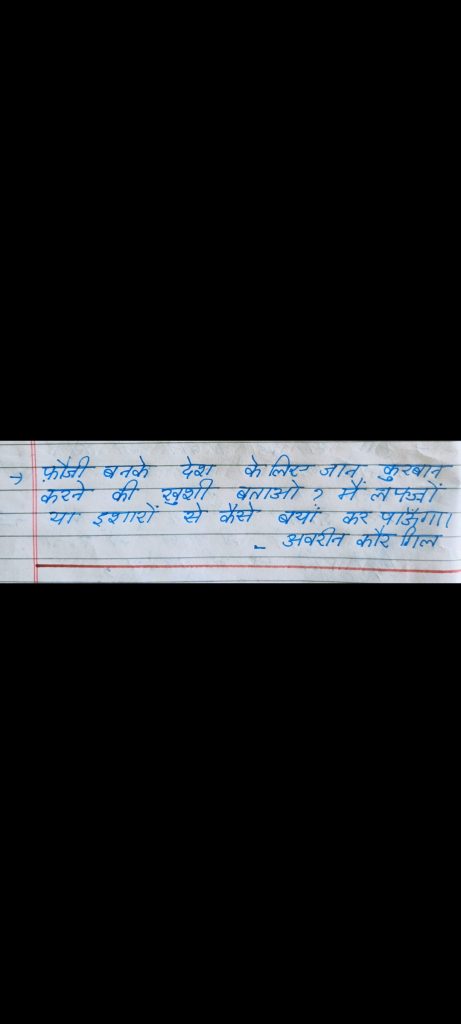 → फ़ौजी बनके देश के लिए जान कुरबान
करने की खुशी बताओ? मैं लफ्जों
या इशारों से कैसे बयां कर पाऊँगा।
- अवरीन कौर गिल